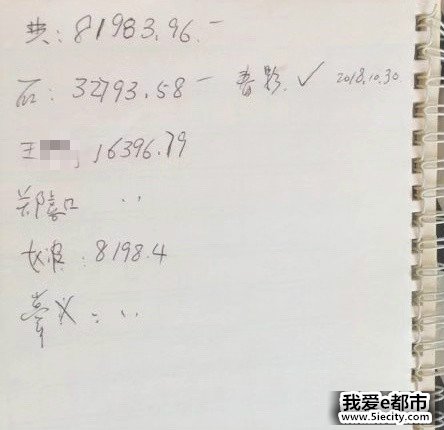 共:81983.96.一
石:32793.58一 春影 ✓ 2018.10.30
王 16396.79
郑 〃
:8198.4
义:〃
我爱e都市
www.5iecity.com